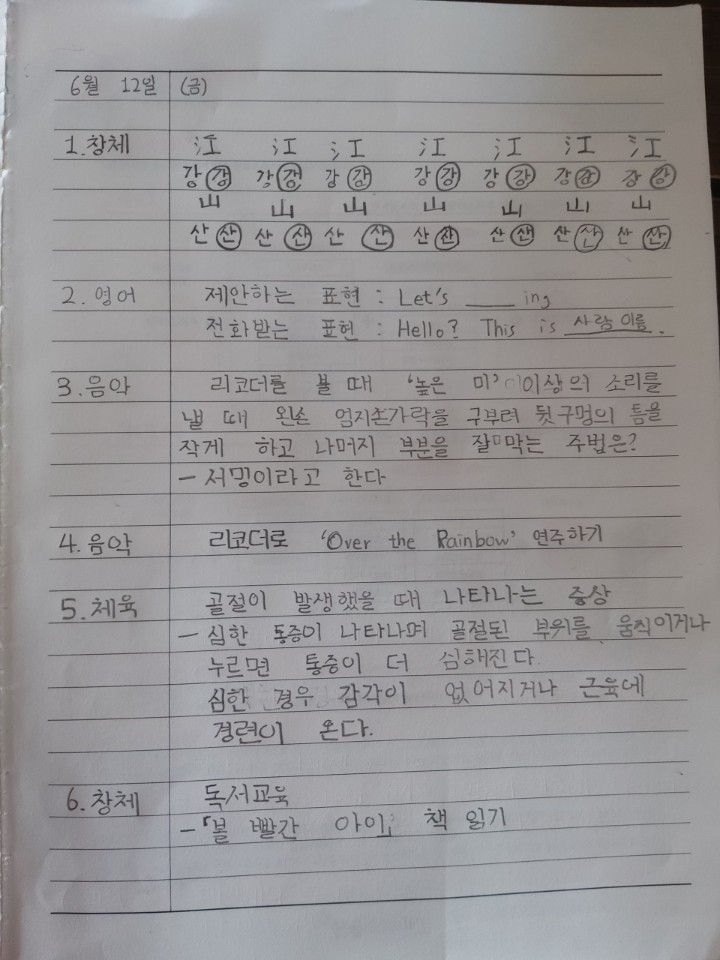 6월 12일 (금)
1. 창체 江 江 江 江 江 江 江
강 강 강 강 강 강 강 강 강 강 강 강 강 강
山 山 山 山 山 山 山
산 산 산 산 산 산 산 산 산 산 산 산 산 산
2. 영어 제안하는 표현 : Let's ____ ing
전화받는 표현 : Hello? This is 사람 이름.
3. 음악 리코더를 불 때 '높은 미' 이상의 소리를
낼 때 왼손 엄지손가락을 구부려 뒷구멍의 틈을
작게 하고 나머지 부분을 잘 막는 주법은?
- 서밍이라고 한다
4. 음악 리코더로 'Over the Rainbow' 연주하기
5. 체육 골절이 발생했을 때 나타나는 증상
- 심한 통증이 나타나며 골절된 부위를 움직이거나
누르면 통증이 더 심해진다.
심한 경우 감각이 없어지거나 근육에
경련이 온다.
6. 창체 독서교육
-「볼 빨간 아이」 책 읽기